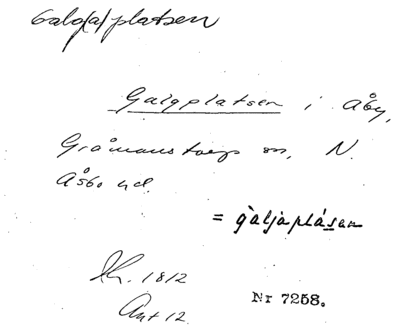 Galg(a)platsen
Galgplatsen i Åby,
Gråmanstorps sn, N.
Åsbo hd.
= gàljaplásen
1812
Ant 12
Nr 7258.